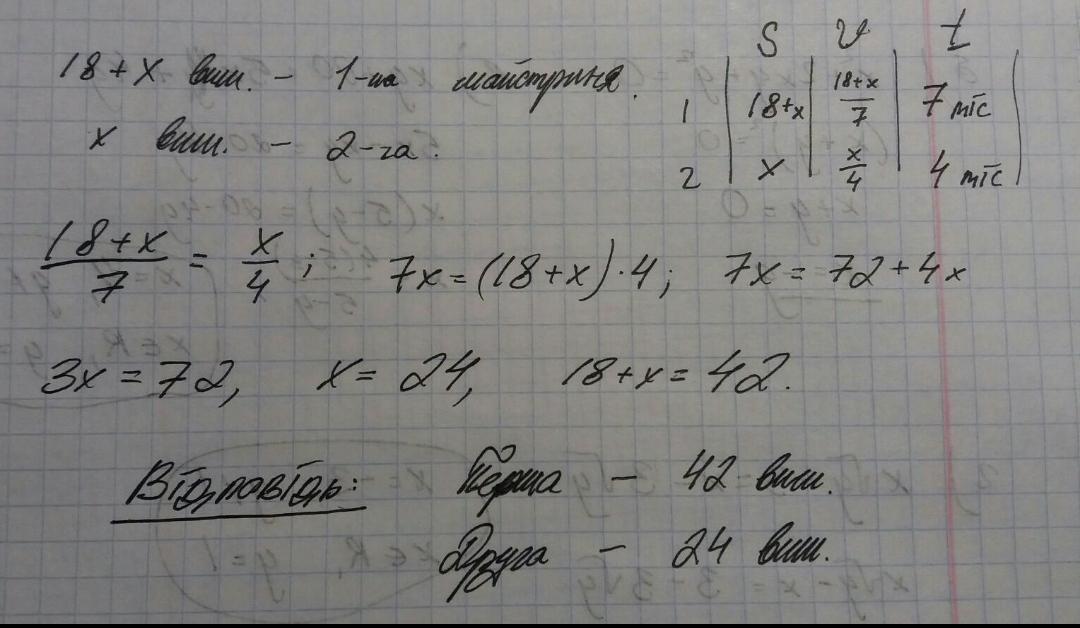 18+x виш. – 1-ша майстриня.
x виш. – 2-га.
S V t
1 18+x 18+x/7 7 міс
2 x x/4 4 міс
18+x/7 = x/4; 7x = (18+x)·4; 7x = 72+4x
3x = 72, x = 24, 18+x = 42.
Відповідь: Перша – 42 виш.
Друга – 24 виш.